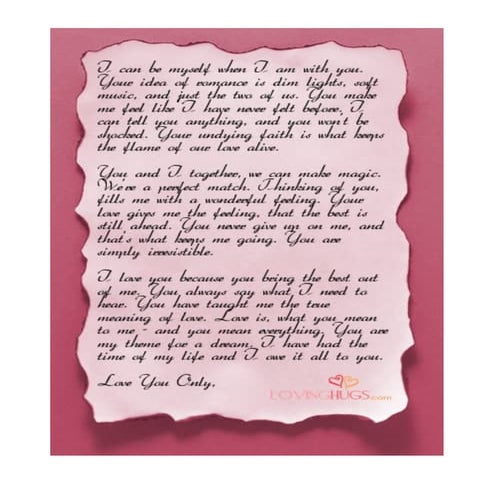 I can be myself when I am with you.
Your idea of romance is dim lights, soft
music, and just the two of us. You make
me feel like I have never felt before. I
can tell you anything, and you won't be
shocked. Your undying faith is what keeps
the flame of our love alive.
You and I together, we can make magic.
We're a perfect match. Thinking of you,
fills me with a wonderful feeling. Your
love gives me the feeling, that the best is
still ahead. You never give up on me, and
that's what keeps me going. You are
simply irresistible.
I love you because you being the best out
of me. You always say what I need to
hear. You have taught me the true
meaning of love. Love is, what you mean
to me - and you mean everything. You are
my theme for a dream. I have had the
time of my life and I owe it all to you.
Love You Only,
LOVINGHUGS.com